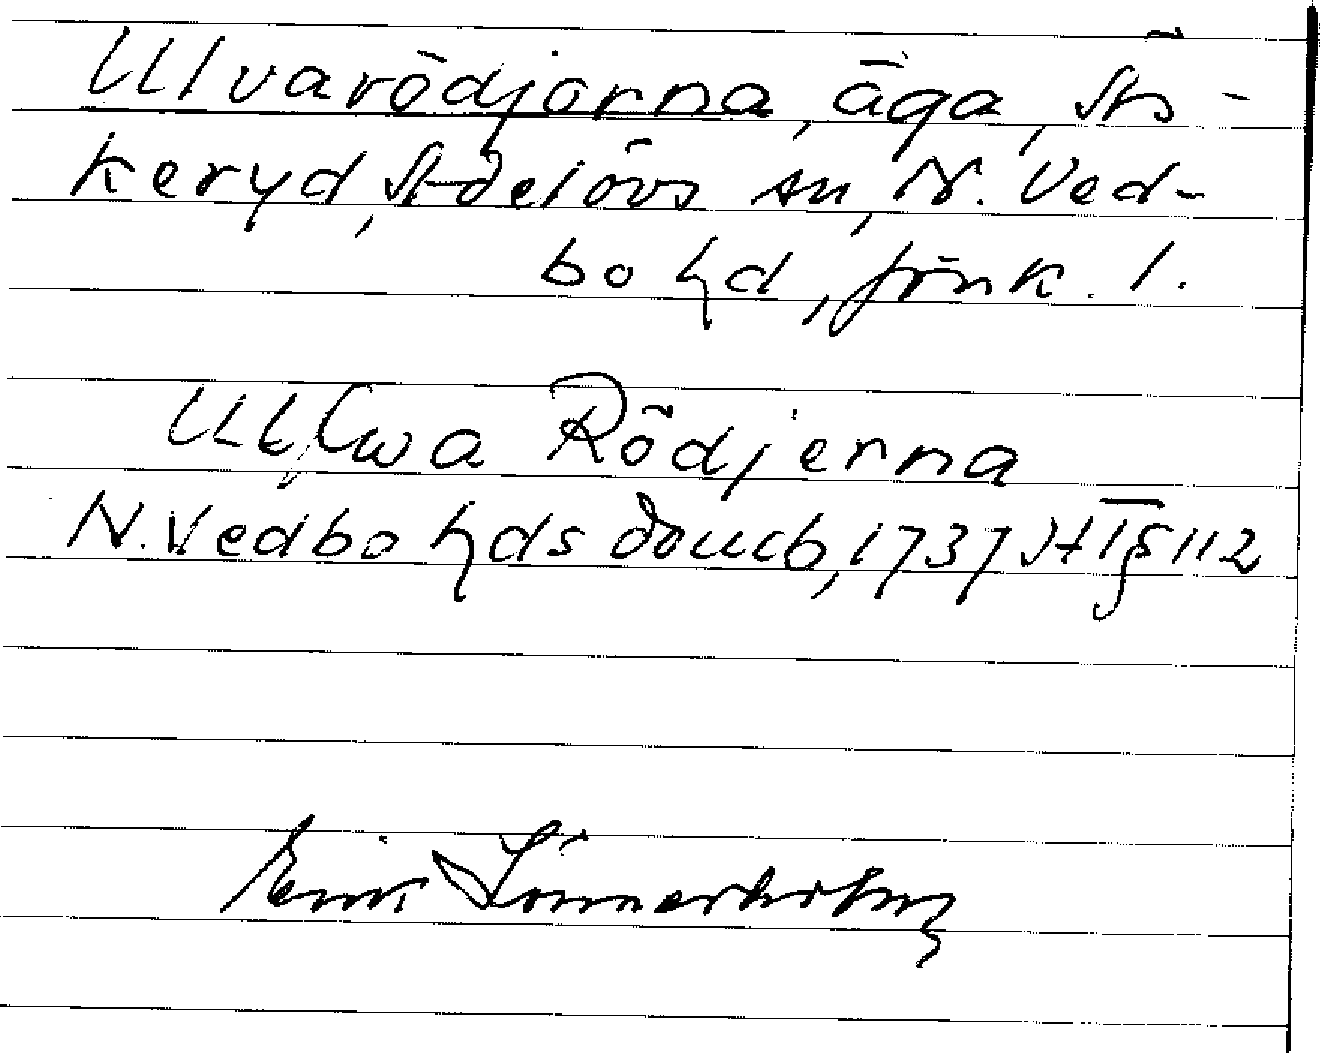 Ulvarödjorna, äga, Stö-
keryd, Adelövs sn, N. Ved-
bo hd, Jönk. l.
Ulfwa Rödjerna
N. Vedbo hds domb, 1737 HT § 112
Erik Lönnerholm